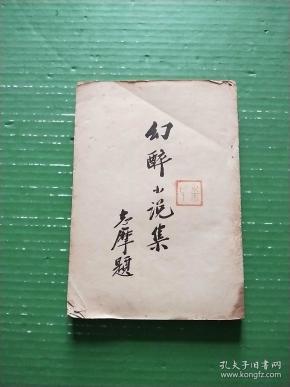 幻醉小说集
志摩题
孔夫子旧书网